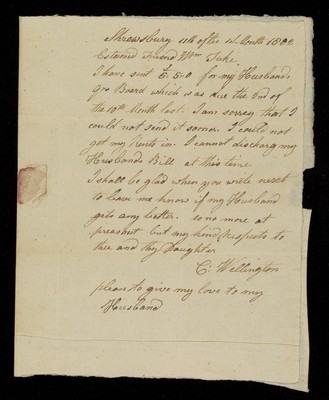 Shrewsbury 11th of the 12 Month 1802
Esteemed Friend Wm Tuke
I have sent £5.5.0 for my Husbands
Board which was due the 2nd of
the 10th Month last. I am sorrey that I
could not send it sooner. I could not
get my Rents in. I cannot discharg my
Husbands Bill at this time
I shall be glad when you write next
to leave me know if my Husband
gets any better. so no more at
preasent but my kind Respects to
thee and thy Daughter
C: Wellington
pleas to give my love to my
Husband